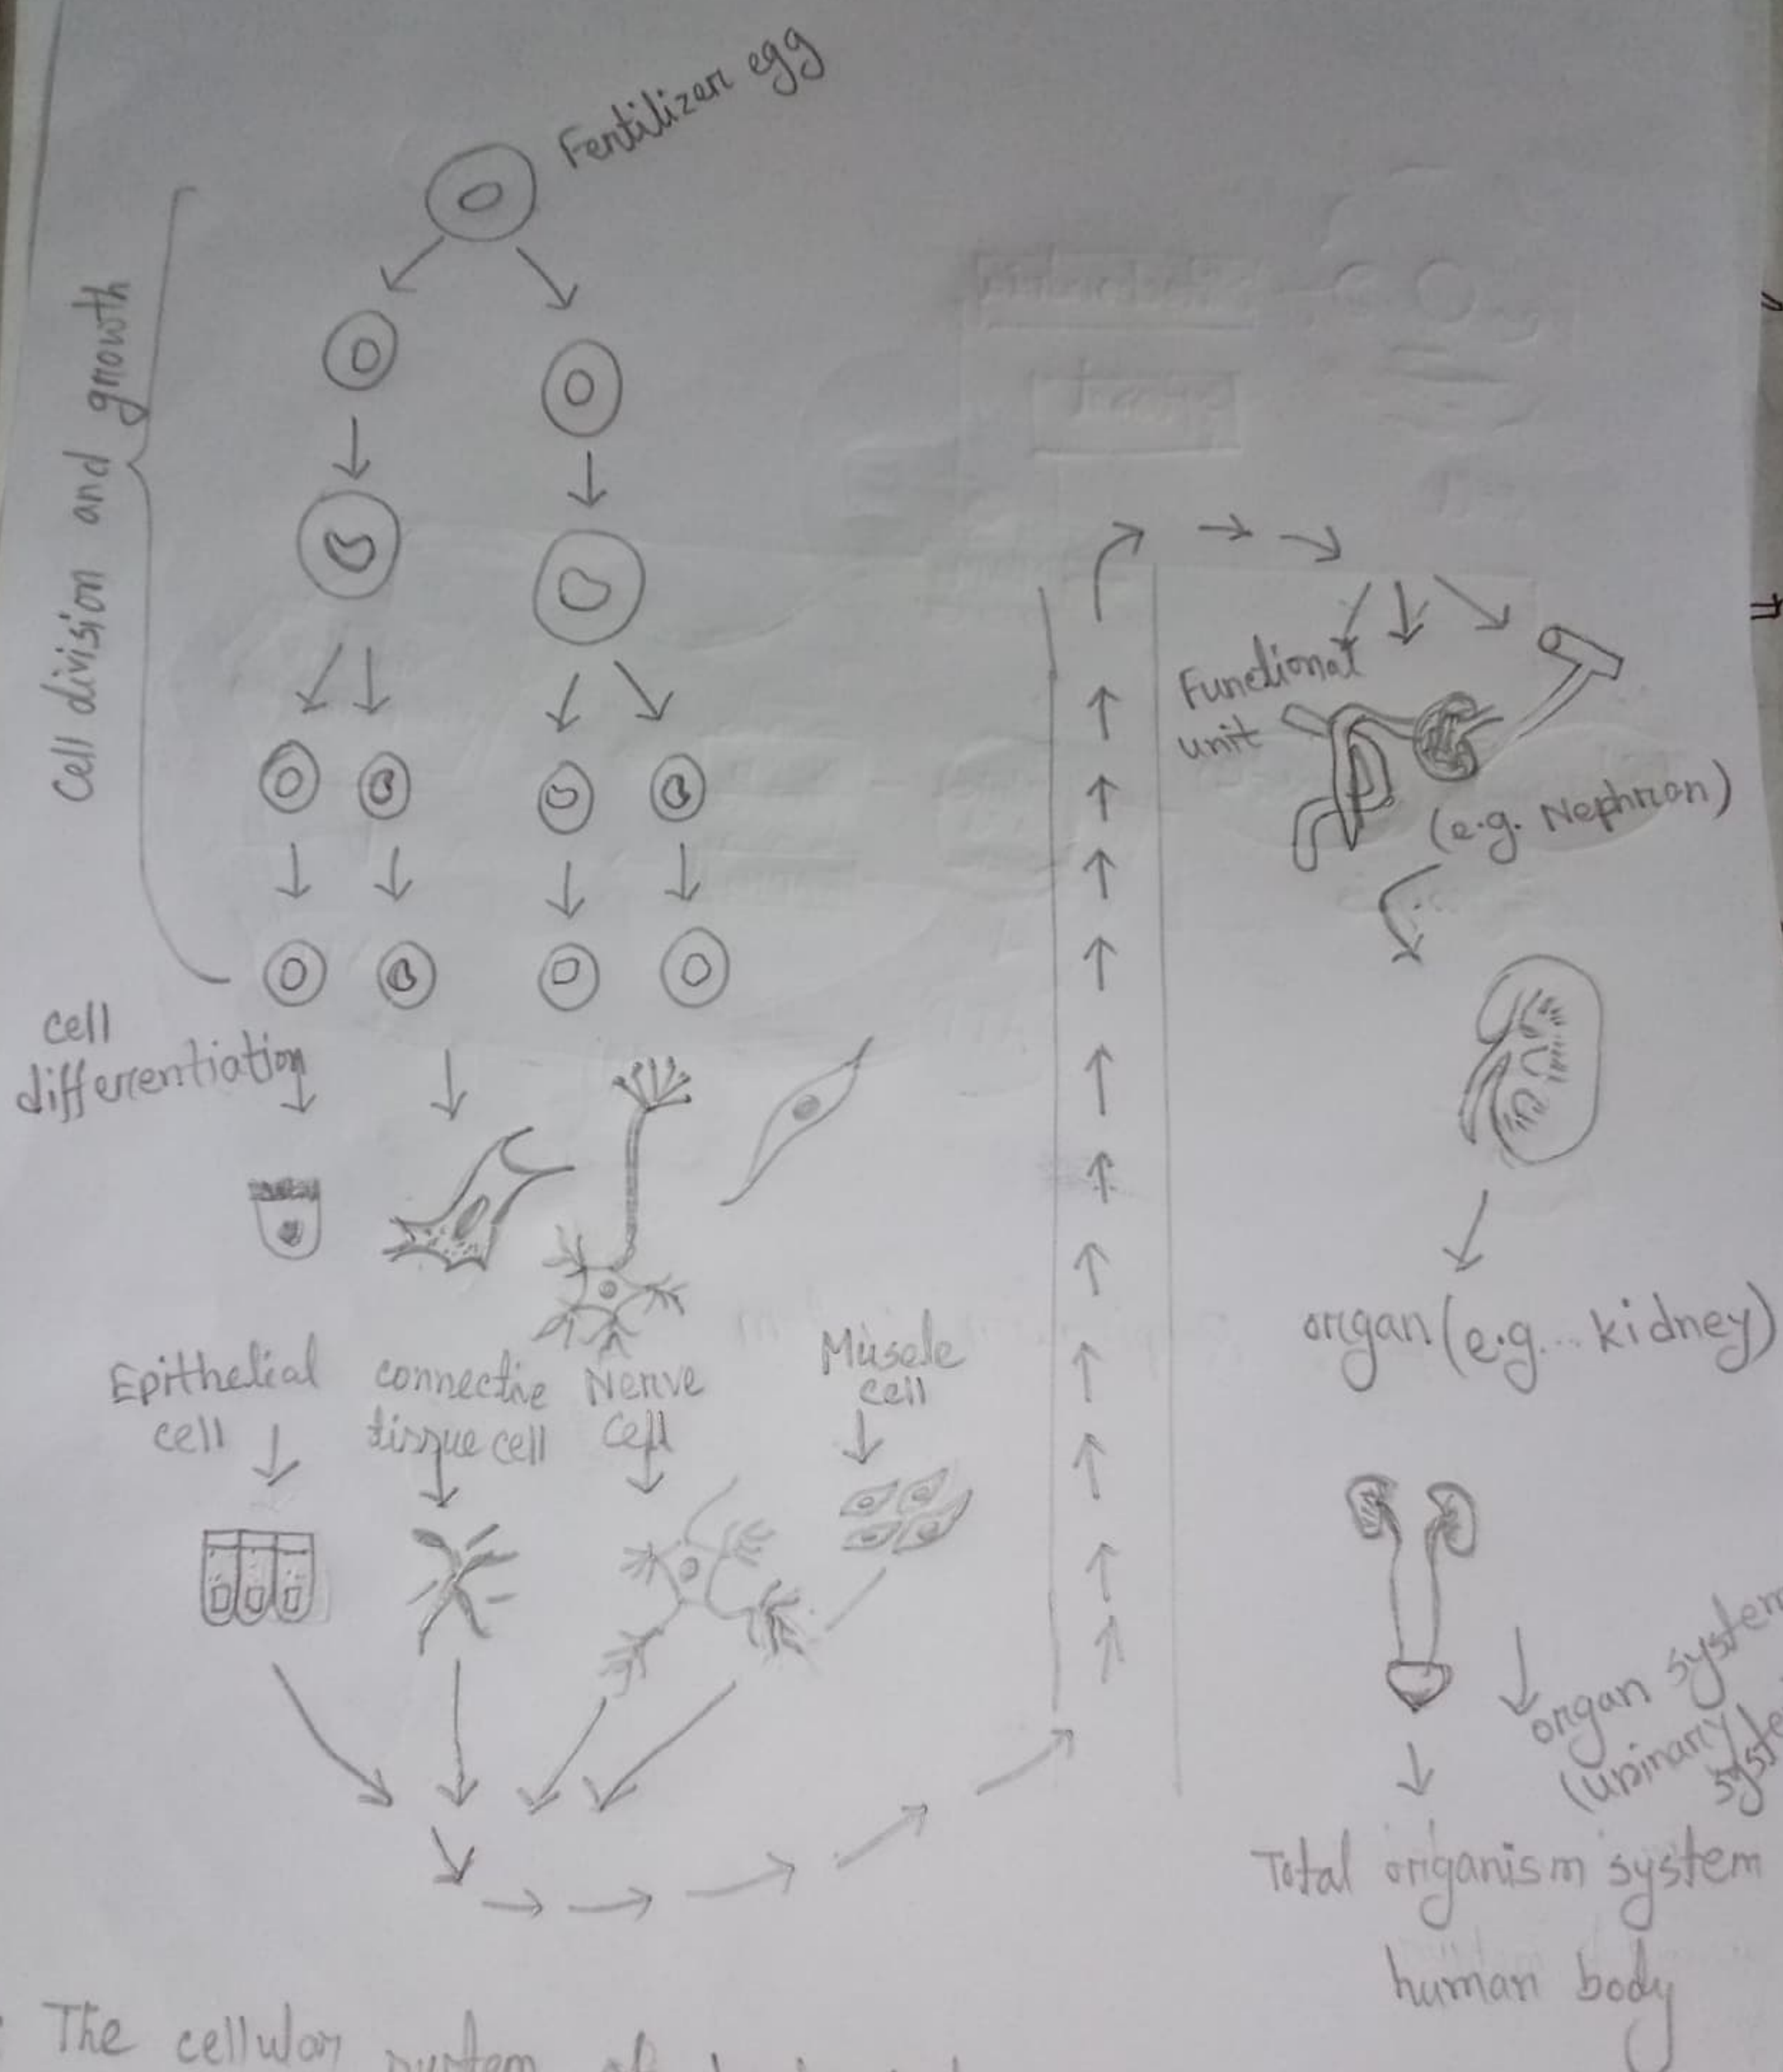 Fertilizen egg
Cell division and growth
cell
differentiation
Epithelial
cell
connective
tissue cell
Nerve
Cell
Muscle
cell
Functional
unit
(e.g. Nephron)
organ (e.g... kidney)
organ system
(urinary
system
Total organism system
human body
The cellular system of